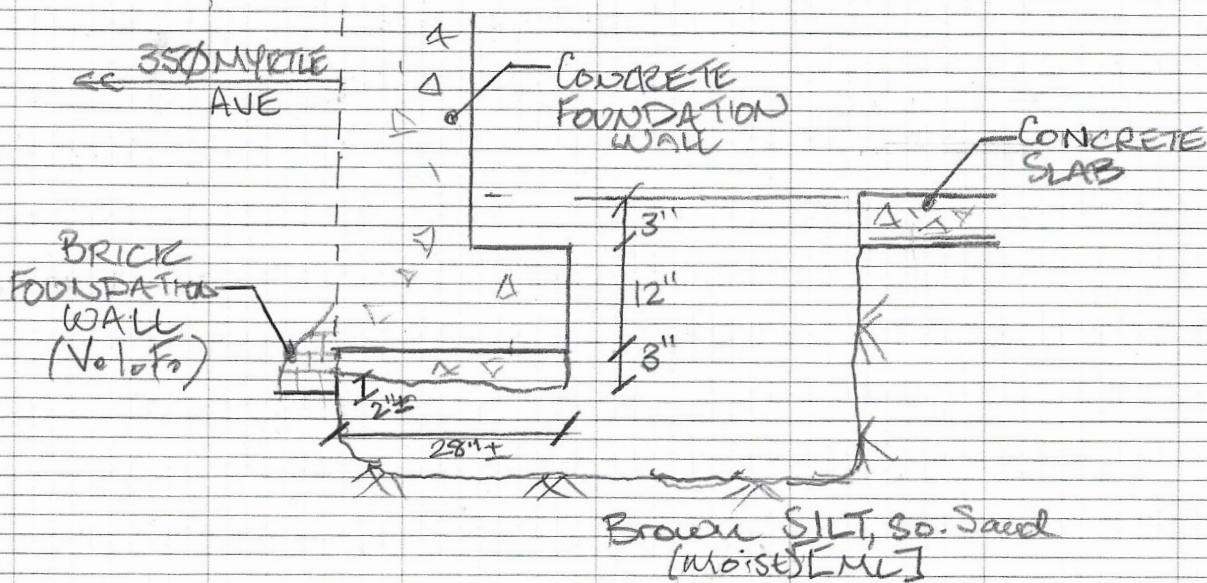 << 350 MYRTLE
AVE
CONCRETE
FOUNDATION
WALL
CONCRETE
SLAB
BRICK
FOUNDATION
WALL
3"
12"
3"
2"±
28"±
Brown SILT, so. Sand
(Moist) [ML]